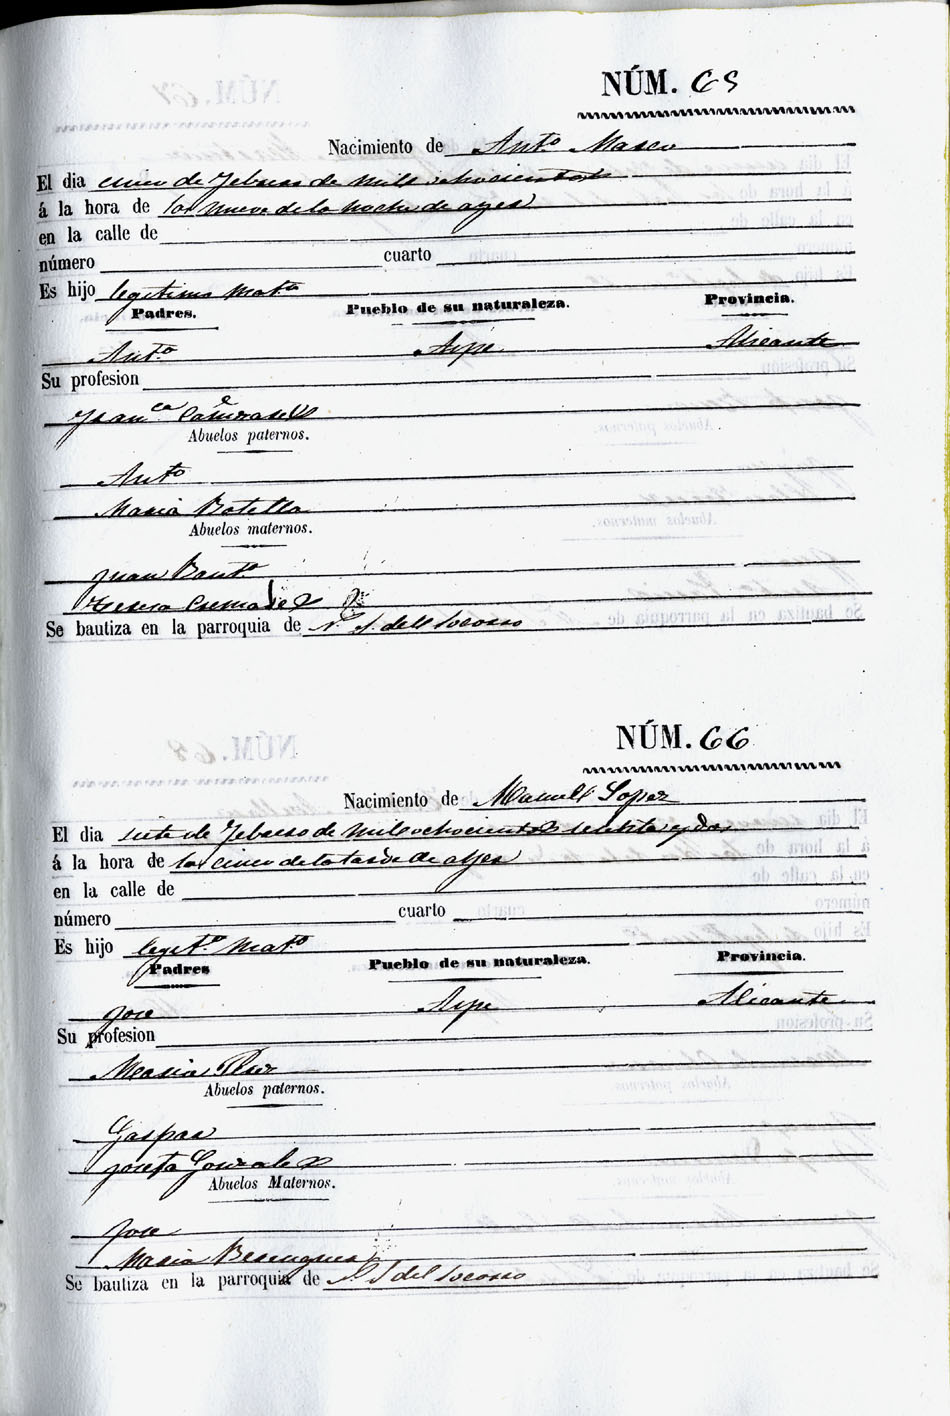 NÚM. 65
Nacimiento de Ant.º Masco
El dia cinco de Febrero de mill ochocientos
á la hora de las nueve de la noche de ayer
en la calle de
número cuarto
Es hijo legitimo Mat.º
Padres. Pueblo de su naturaleza. Provincia.
Ant.º Aspe Alicante
Su profesion
Fran.ca
Abuelos paternos.
Ant.º
Maria Botella
Abuelos maternos.
Juan Baut.ª
Teresa Cremades
Se bautiza en la parroquia de N. S. dell Socorro
NÚM. 66
Nacimiento de Manuell Lopez
El dia siete de Febrero de mil ochocientos setenta y dos
á la hora de las cinco de la tarde de ayer
en la calle de
número cuarto
Es hijo legit.º Mat.º
Padres Pueblo de su naturaleza. Provincia.
Jose Aspe Alicante
Su profesion
Maria
Abuelos paternos.
Gaspar
Josefa Gonzalez
Abuelos Maternos.
Jose
Maria Berenguer
Se bautiza en la parroquia de N. S. del Socorro